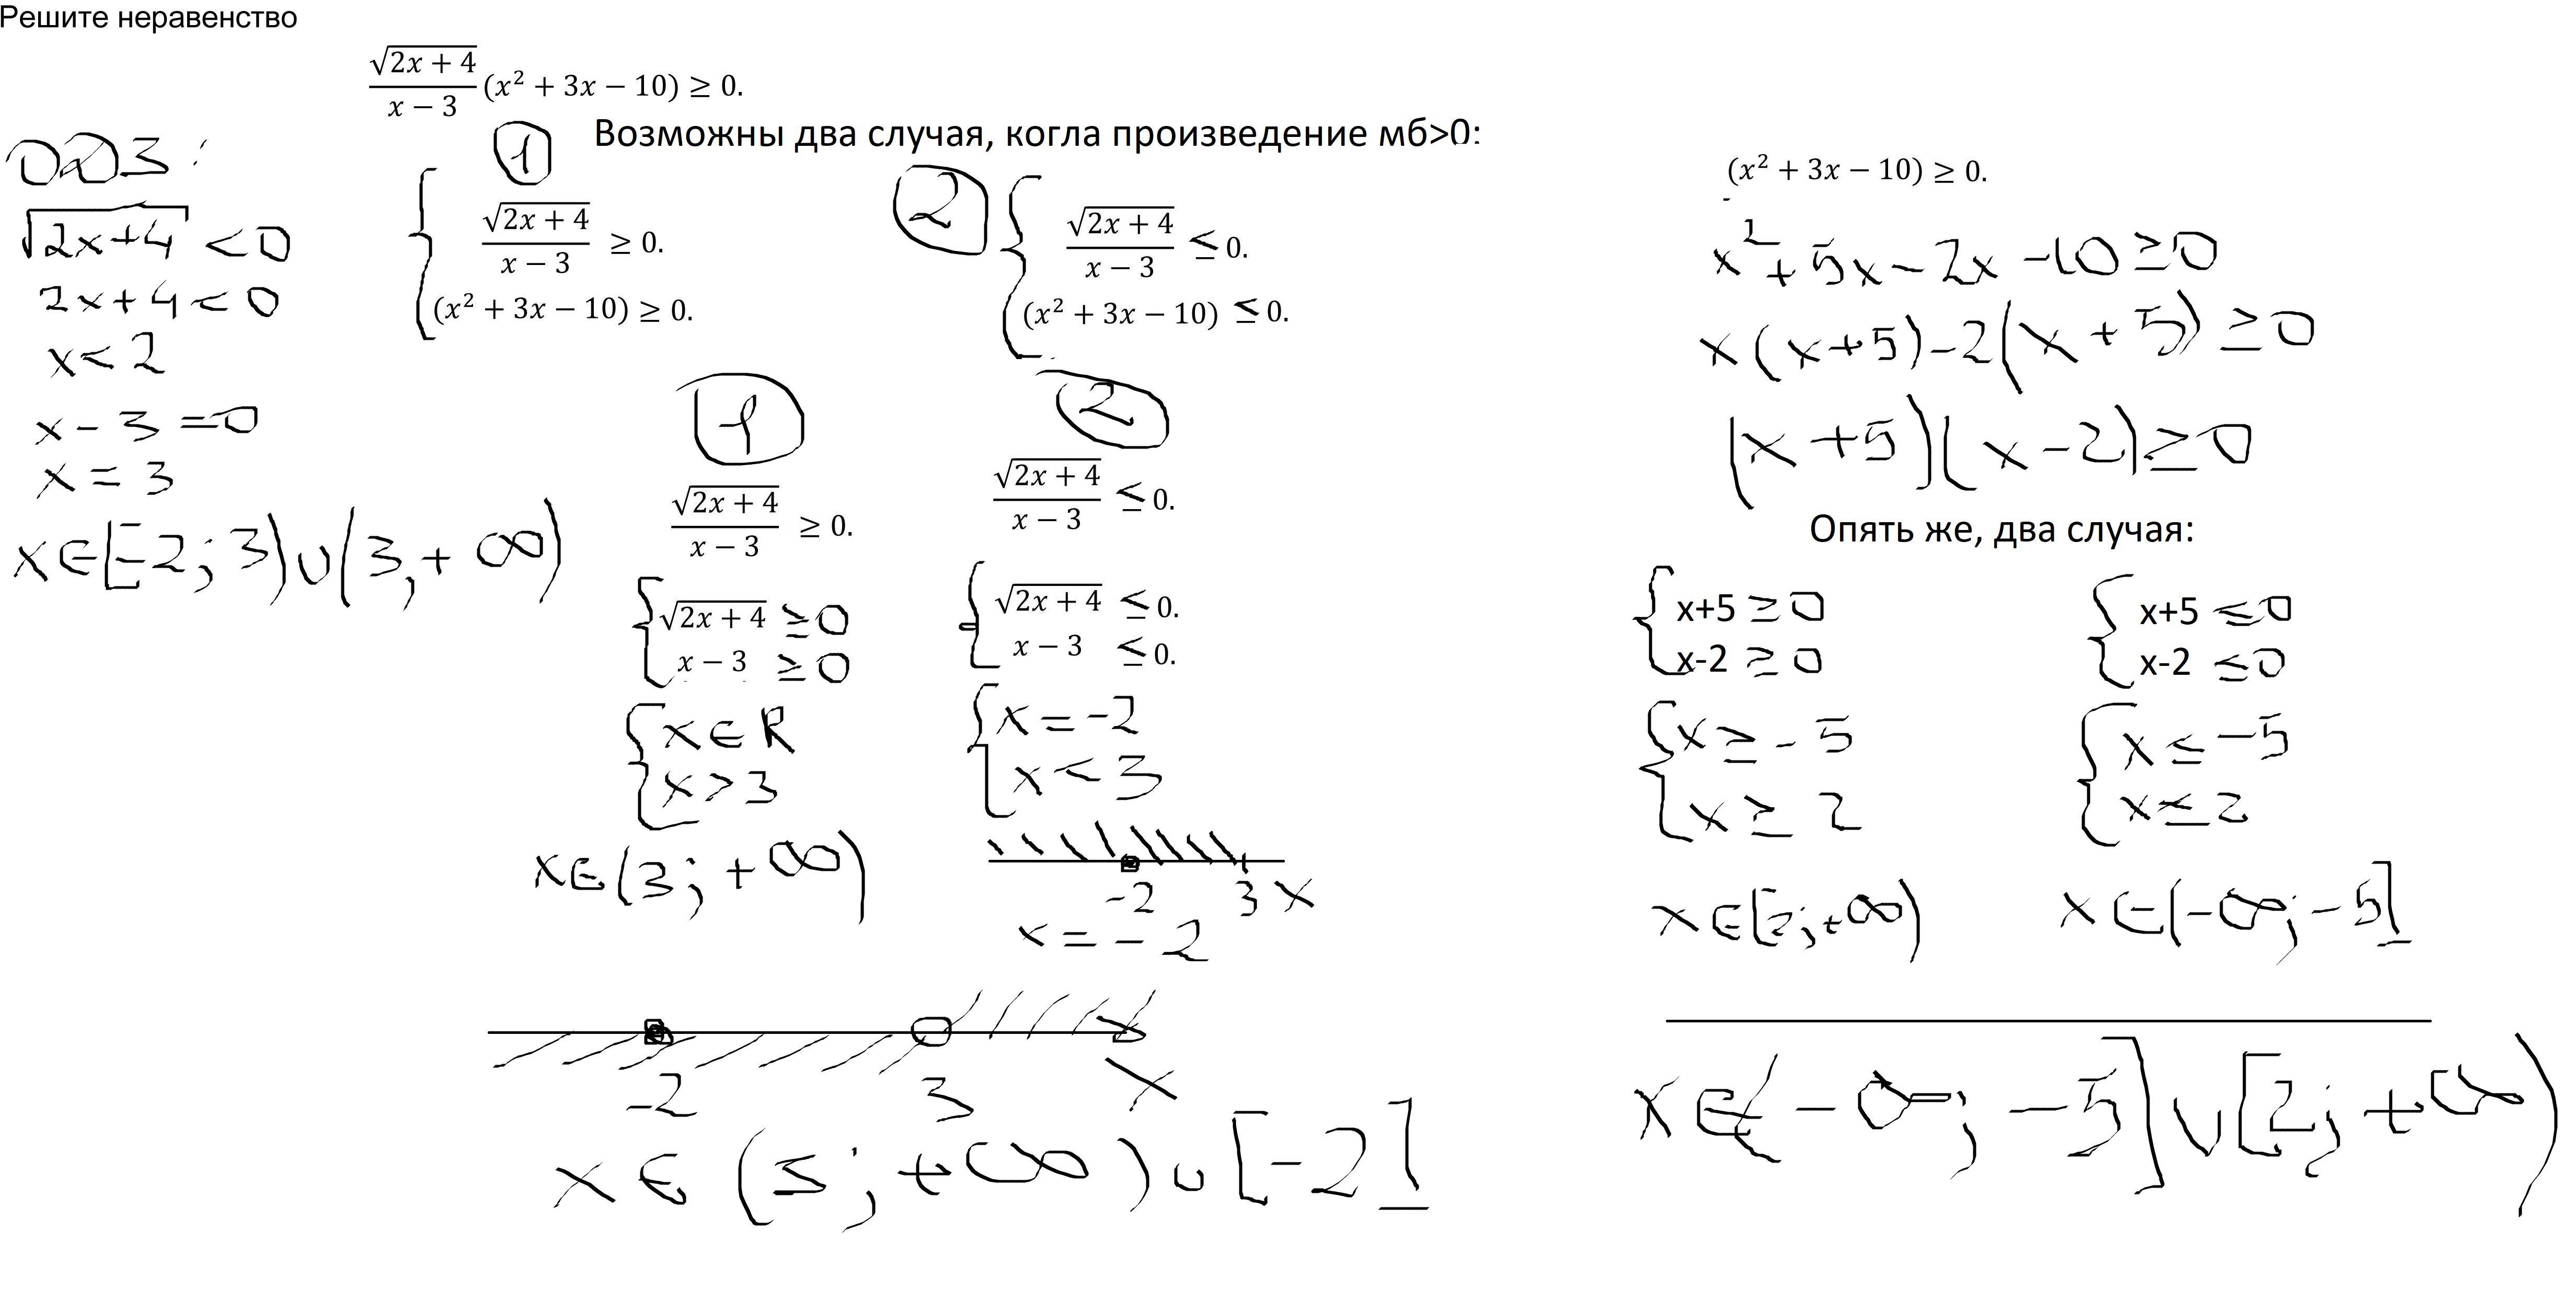 Решите неравенство
√(2x + 4)/(x − 3) (x² + 3x − 10) ≥ 0.
ОДЗ:
√(2x+4) < 0
2x+4 < 0
x < 2
x − 3 = 0
x = 3
x ∈ [−2; 3) ∪ (3, +∞)
Возможны два случая, когла произведение мб>0:
1
{ √(2x + 4)/(x − 3) ≥ 0.
(x² + 3x − 10) ≥ 0.
2
{ √(2x + 4)/(x − 3) ≤ 0.
(x² + 3x − 10) ≤ 0.
1
√(2x + 4)/(x − 3) ≥ 0.
{ √(2x + 4) ≥ 0
x − 3 ≥ 0
{ x ∈ R
x > 3
x ∈ (3; +∞)
2
√(2x + 4)/(x − 3) ≤ 0.
{ √(2x + 4) ≤ 0.
x − 3 ≤ 0.
{ x = −2
x < 3
−2 3 x
x = −2
−2 3 x
x ∈ (3; +∞) ∪ [−2]
(x² + 3x − 10) ≥ 0.
x² + 5x − 2x − 10 ≥ 0
x(x+5) − 2(x+5) ≥ 0
(x+5)(x−2) ≥ 0
Опять же, два случая:
{ x+5 ≥ 0
x-2 ≥ 0
{ x ≥ −5
x ≥ 2
x ∈ [2; +∞)
{ x+5 ≤ 0
x-2 ≤ 0
{ x ≤ −5
x ≤ 2
x ∈ (−∞; −5]
x ∈ (−∞; −5] ∪ [2; +∞)